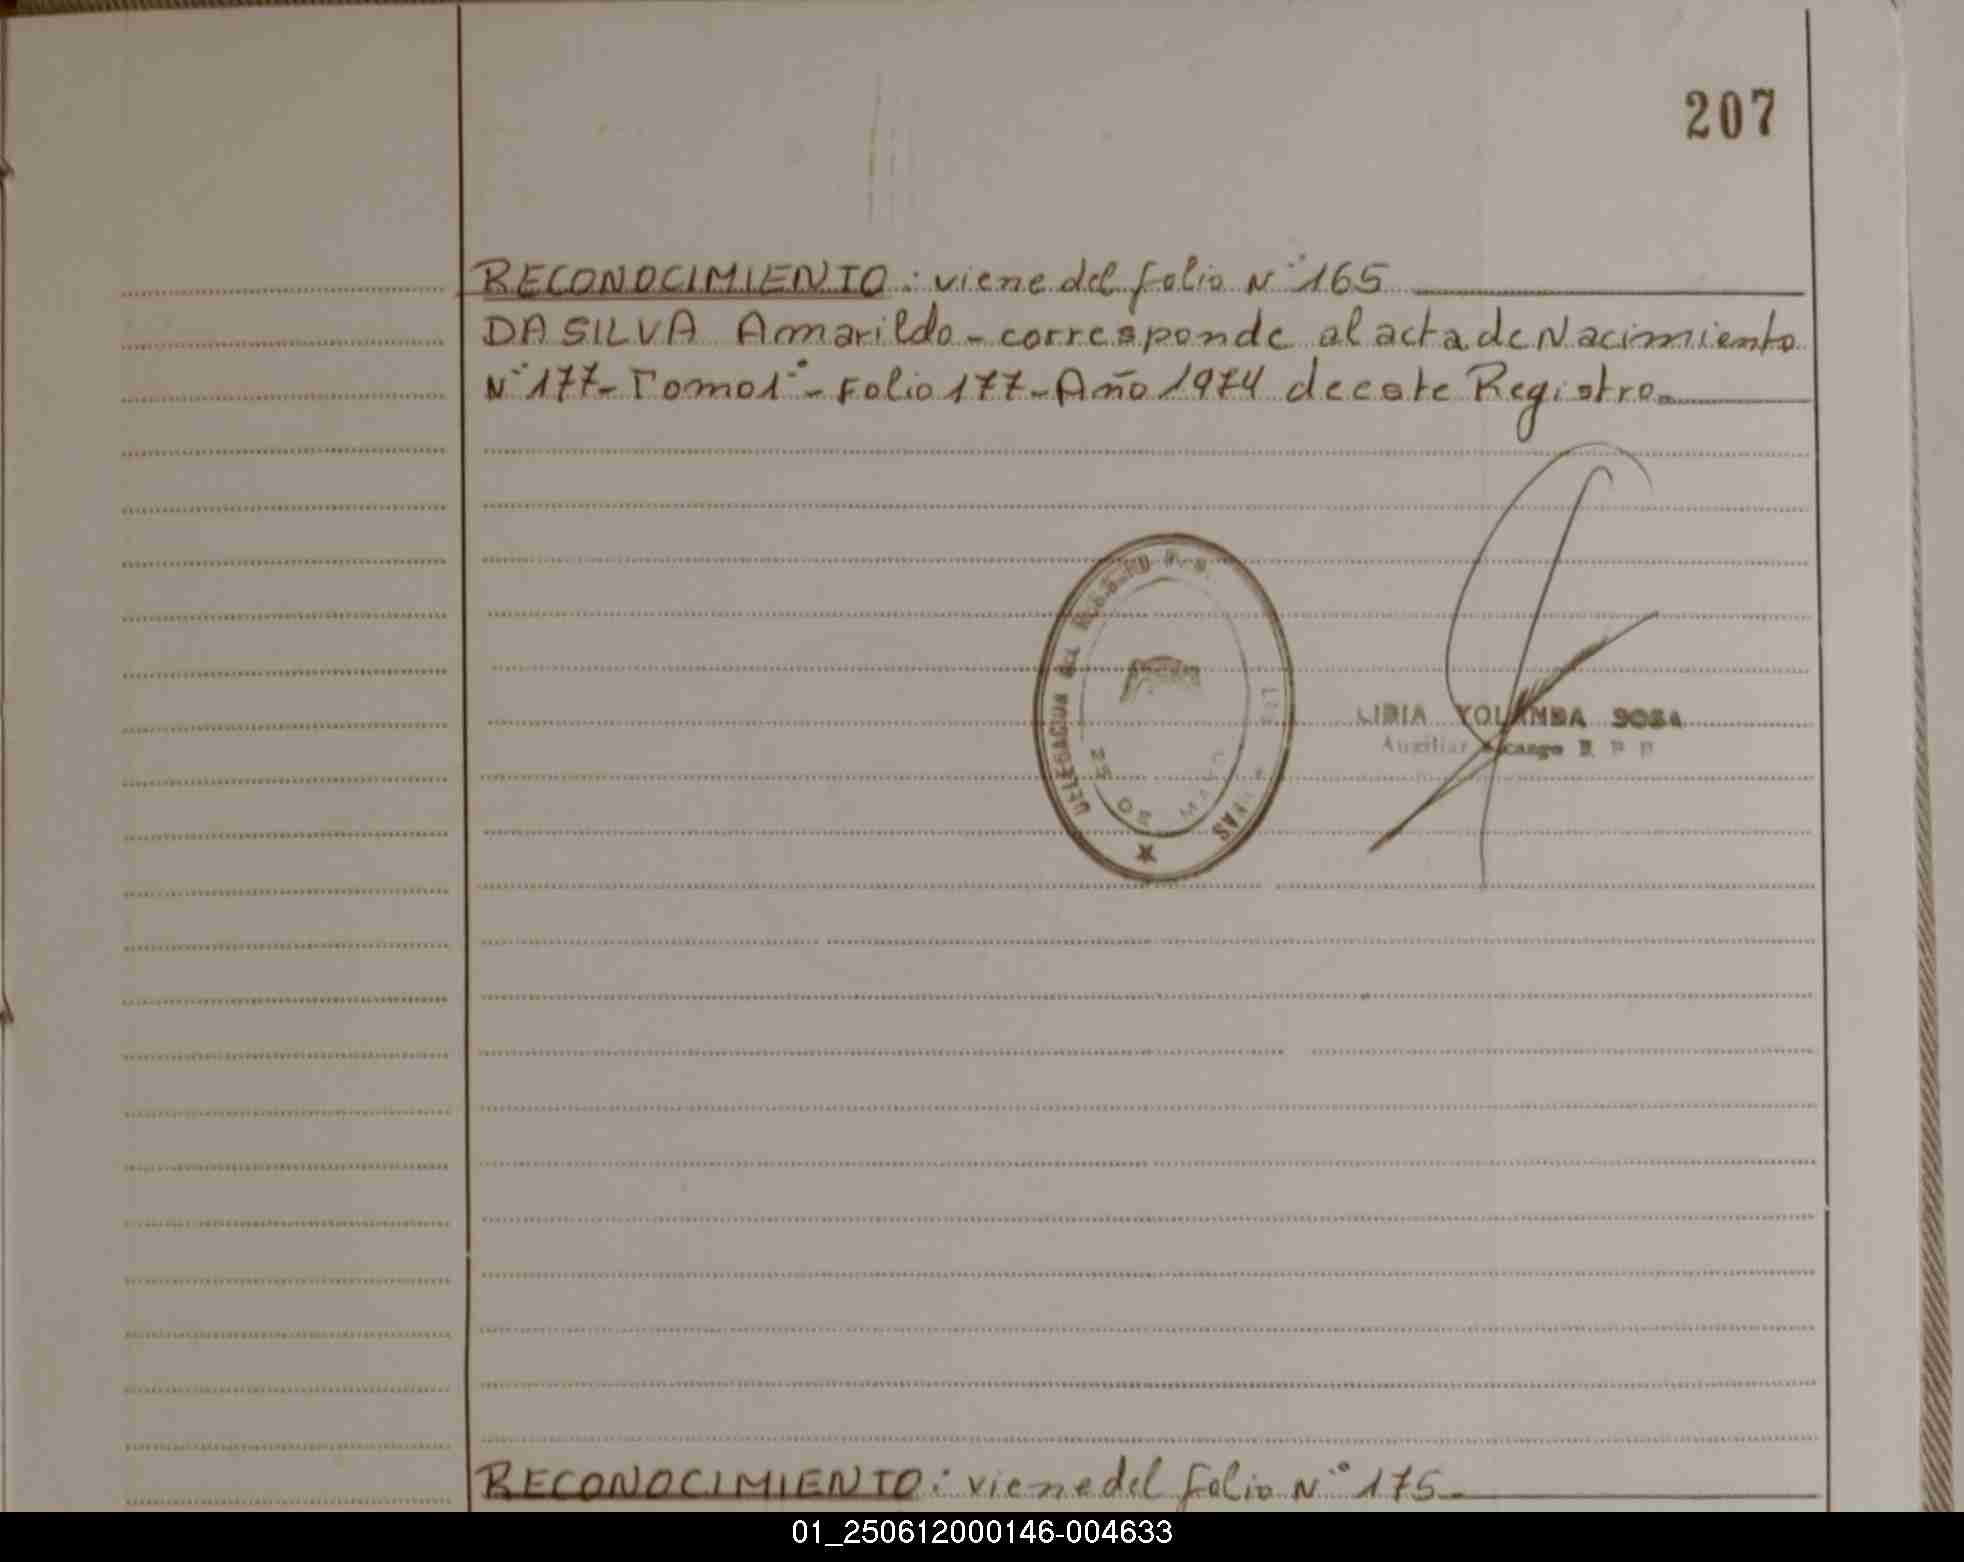 207
RECONOCIMIENTO: viene del folio N° 165
DA SILVA Amarildo - corresponde al acta de Nacimiento
N° 177 - Tomo 1° - Folio 177 - Año 1974 de este Registro.
DELEGACION DEL
25 DE MAYO
LIBIA YOLANDA SOSA
Auxiliar a cargo R P P
RECONOCIMIENTO: viene del folio N° 175.
01_250612000146-004633